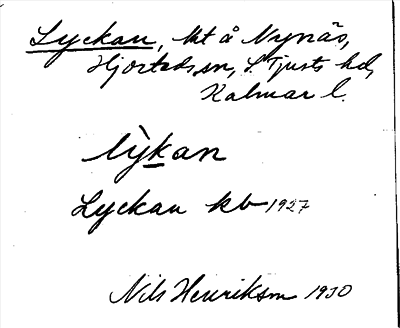 Lyckan, lht å Nynäs,
Hjorteds sn, S. Tjusts hd,
Kalmar l.
lỳkan
Lyckan kb 1927
Nils Henrikson 1930